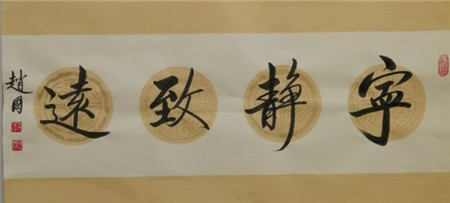 寧静致遠
趙國